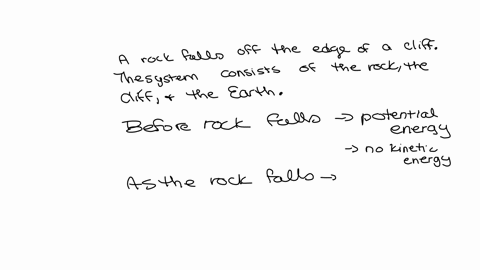 A rock falls off the edge of a cliff.
The system consists of the rock, the
cliff, & the Earth.
Before rock falls → potential
energy
→ no kinetic
energy
As the rock falls →